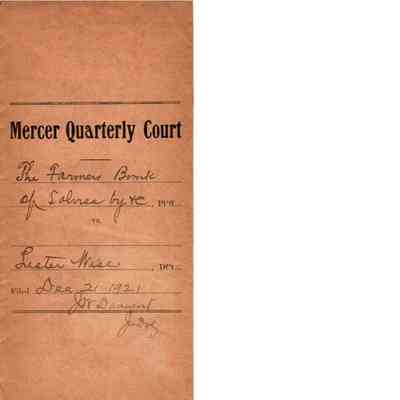 Mercer Quarterly Court
The Farmers Bank
of Salvisa by &c, Pl't'ff.
vs.
Lester Wise, Df't.
Filed Dec 21 1921